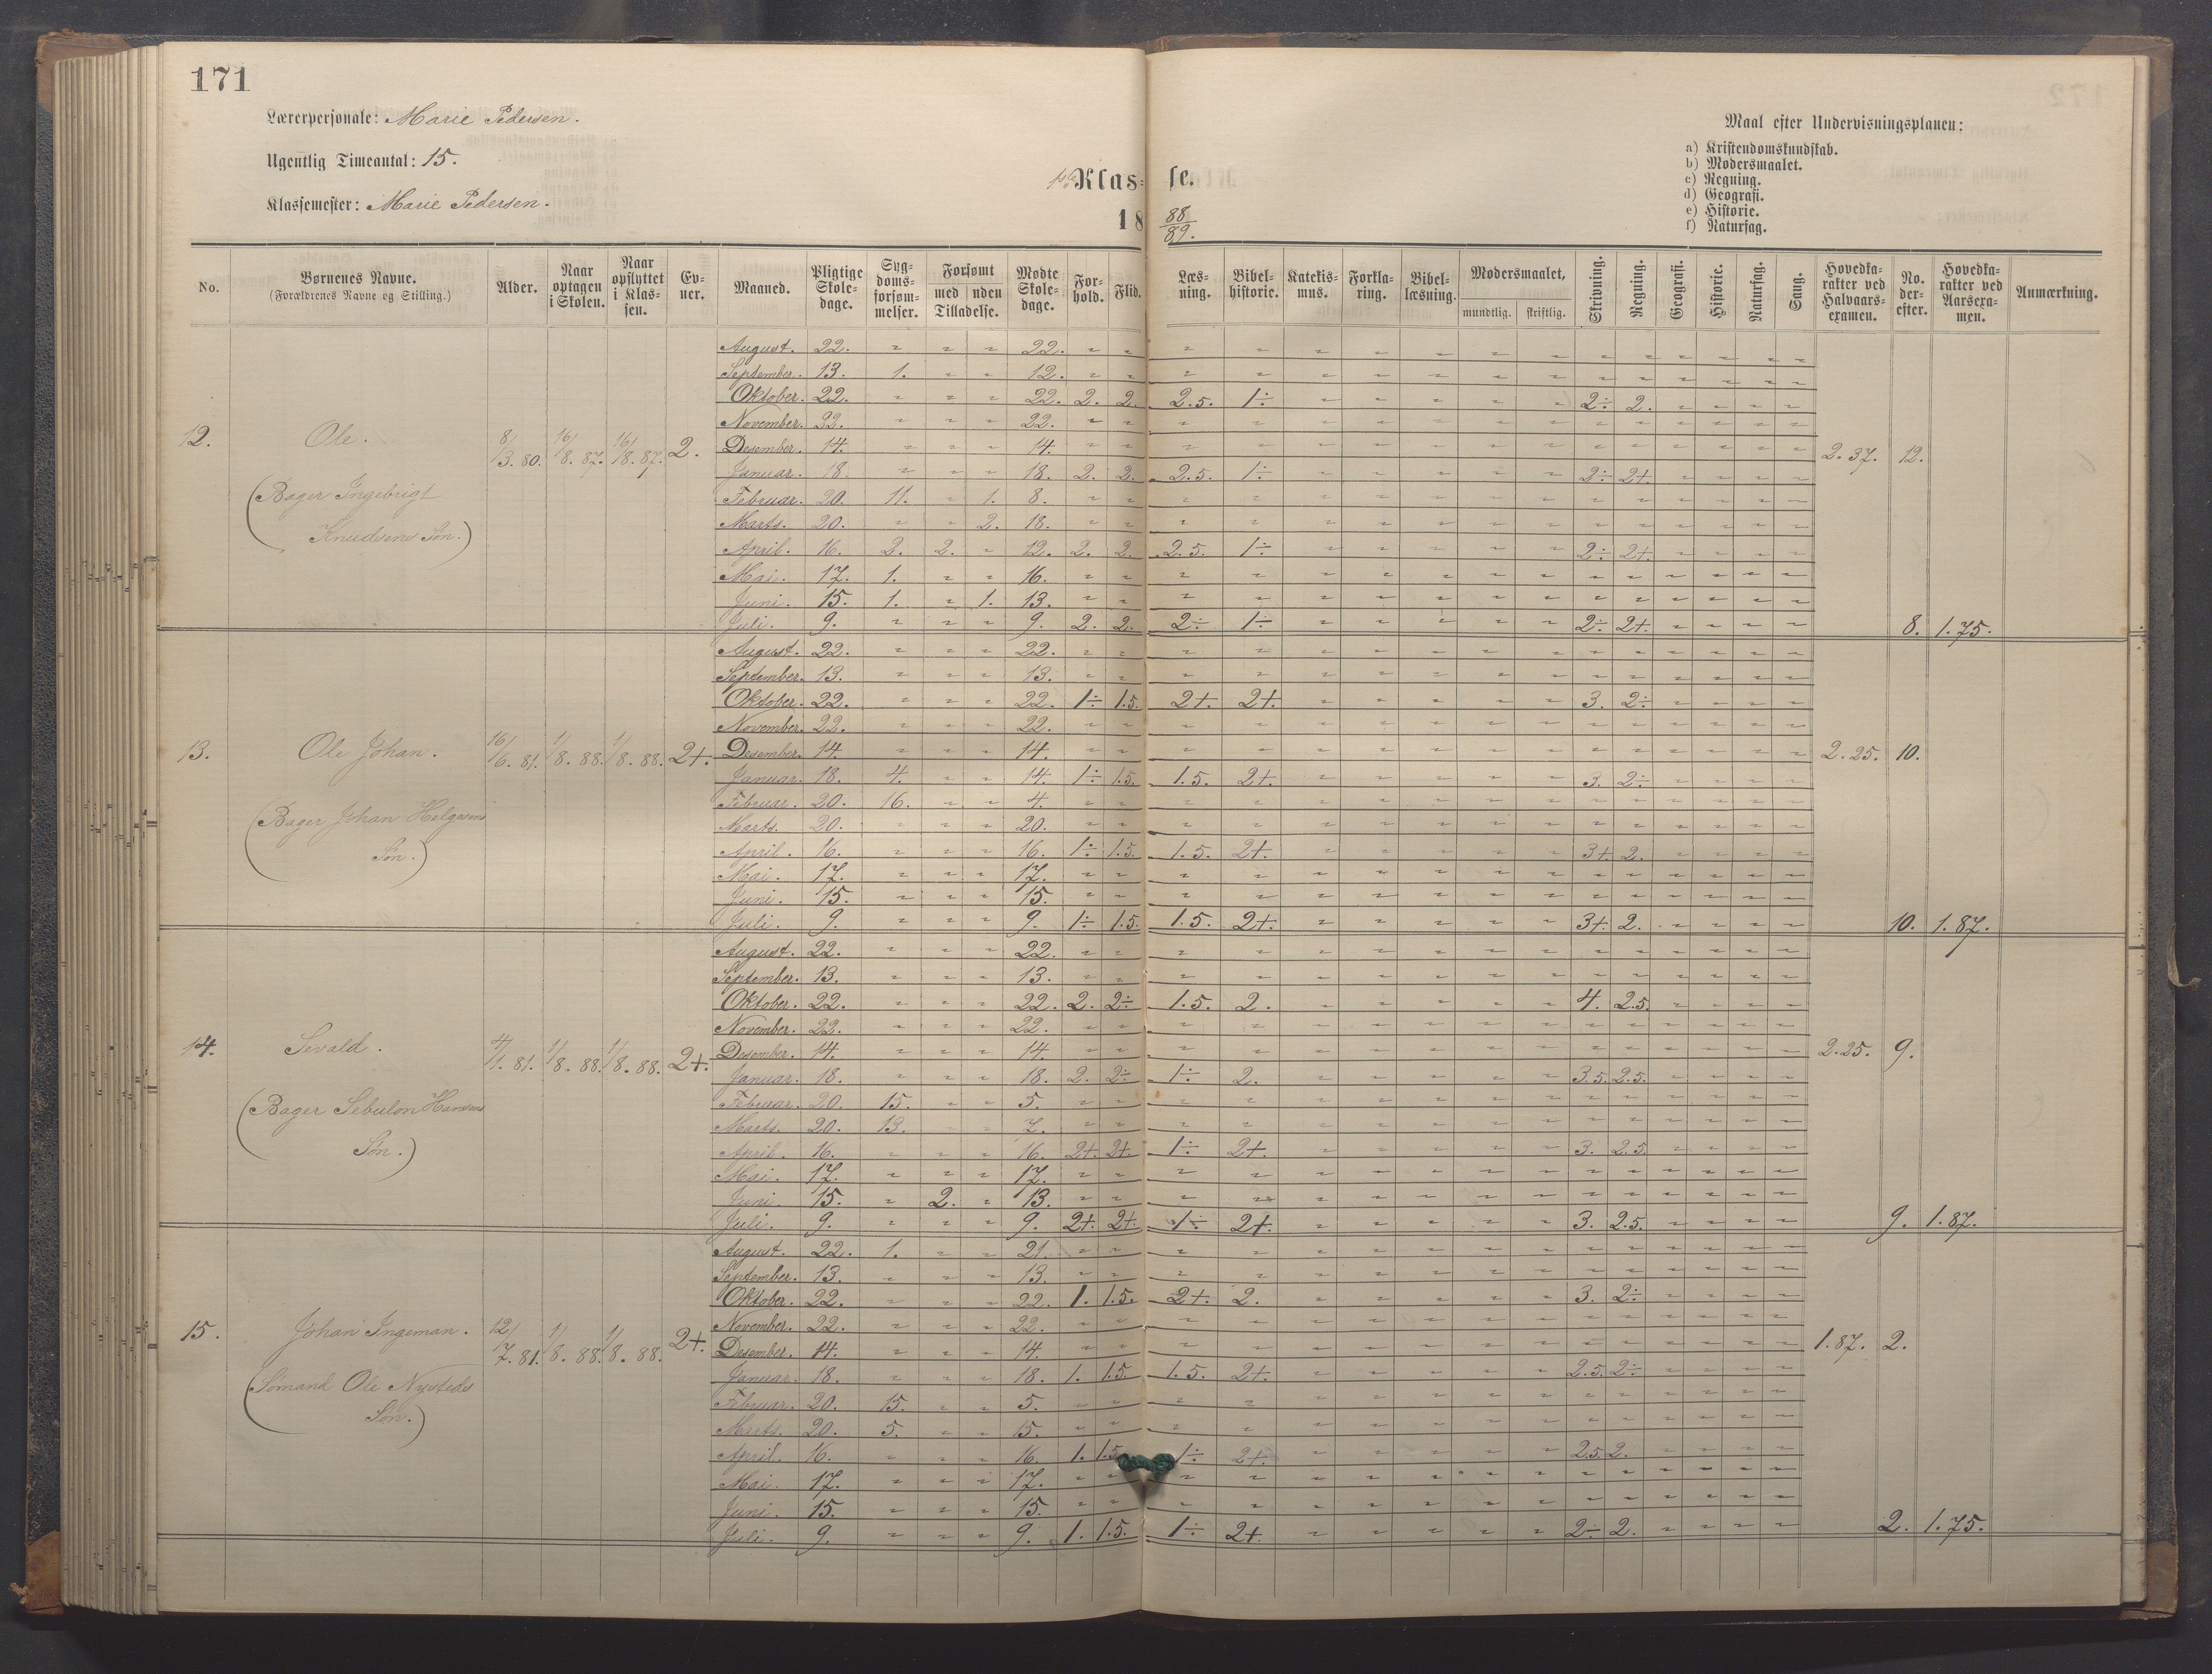 171
Lærerpersonale: Marie Pedersen.
Ugentlig Timeantal: 15.
Klassemester: Marie Pedersen.
1ste Klasse.
18 88/89.
Maal efter Undervisningsplanen:
a) Kristendomskundskab.
b) Modersmaalet.
c) Regning.
d) Geografi.
e) Historie.
f) Naturfag.
No. Børnenes Navne. (Forældrenes Navne og Stilling.) Alder. Naar optagen i Skolen. Naar opflyttet i Klassen. Evner. Maaned. Pligtige Skoledage. Sygdomsforsømmelser. Forsømt med nden Tilladelse. Mødte Skoledage. Forhold. Flid. Læsning. Bibelhistorie. Katekismus. Forklaring. Bibellæsning. Modersmaalet, mundtlig. skriftlig. Skrivning. Regning. Geografi. Historie. Naturfag. Sang. Hovedkarakter ved Halvaarsexamen. No. derefter. Hovedkarakter ved Aarsexamen. Anmærkning.
12. Ole. (Bager Ingebrigt Knudsens Søn.) 8/3. 80. 16/8. 87. 16/8. 87. 2. 2.37. 12.
August. 22. " " " 22. " " " " " " " " " " " " " " "
September. 13. 1. " " 12. " " " " " " " " " " " " " " "
Oktober. 22. " " " 22. 2. 2. 2.5. 1÷ " " " " " 2÷ 2. " " " "
November. 22. " " " 22. " " " " " " " " " " " " " " "
Desember. 14. " " " 14. " " " " " " " " " " " " " " "
Januar. 18. " " " 18. 2. 2. 2.5. 1÷ " " " " " 2÷ 2+. " " " "
Februar. 20. 11. " 1. 8. " " " " " " " " " " " " " " "
Marts. 20. " " 2. 18. " " " " " " " " " " " " " " "
April. 16. 2. 2. " 12. 2. 2. 2.5. 1÷ " " " " " 2÷ 2+. " " " "
Mai. 17. 1. " " 16. " " " " " " " " " " " " " " "
Juni. 15. 1. " 1. 13. " " " " " " " " " " " " " " "
Juli. 9. " " " 9. 2. 2. 2÷ 1÷ " " " " " 2÷ 2+. " " " " 8. 1.75.
13. Ole Johan. (Bager Johan Helgesens Søn.) 16/6. 81. 1/8. 88. 1/8. 88. 2+. 2.25. 10.
August. 22. " " " 22. " " " " " " " " " " " " " " "
September. 13. " " " 13. " " " " " " " " " " " " " " "
Oktober. 22. " " " 22. 1÷ 1.5. 2+. 2+. " " " " " 3. 2÷ " " " "
November. 22. " " " 22. " " " " " " " " " " " " " " "
Desember. 14. " " " 14. " " " " " " " " " " " " " " "
Januar. 18. 4. " " 14. 1÷ 1.5. 1.5. 2+. " " " " " 3. 2÷ " " " "
Februar. 20. 16. " " 4. " " " " " " " " " " " " " " "
Marts. 20. " " " 20. " " " " " " " " " " " " " " "
April. 16. " " " 16. 1÷ 1.5. 1.5. 2+. " " " " " 3+. 2. " " " "
Mai. 17. " " " 17. " " " " " " " " " " " " " " "
Juni. 15. " " " 15. " " " " " " " " " " " " " " "
Juli. 9. " " " 9. 1÷ 1.5. 1.5. 2+. " " " " " 3+. 2. " " " " 10. 1.87.
14. Sevald. (Bager Sebulon Hansens Søn.) 4/1. 81. 1/8. 88. 1/8. 88. 2+. 2.25. 9.
August. 22. " " " 22. " " " " " " " " " " " " " " "
September. 13. " " " 13. " " " " " " " " " " " " " " "
Oktober. 22. " " " 22. 2. 2÷ 1.5. 2. " " " " " 4. 2.5. " " " "
November. 22. " " " 22. " " " " " " " " " " " " " " "
Desember. 14. " " " 14. " " " " " " " " " " " " " " "
Januar. 18. " " " 18. 2. 2÷ 1÷ 2. " " " " " 3.5. 2.5. " " " "
Februar. 20. 15. " " 5. " " " " " " " " " " " " " " "
Marts. 20. 13. " " 7. " " " " " " " " " " " " " " "
April. 16. " " " 16. 2+. 2+. 1÷ 2+. " " " " " 3. 2.5. " " " "
Mai. 17. " " " 17. " " " " " " " " " " " " " " "
Juni. 15. " 2. " 13. " " " " " " " " " " " " " " "
Juli. 9. " " " 9. 2+. 2+. 1÷ 2+. " " " " " 3. 2.5. " " " " 9. 1.87.
15. Johan Ingeman. (Sømand Ole Nysteds Søn.) 12/7. 81. 1/8. 88. 1/8. 88. 2+. 1.87. 2.
August. 22. 1. " " 21. " " " " " " " " " " " " " " "
September. 13. " " " 13. " " " " " " " " " " " " " " "
Oktober. 22. " " " 22. 1. 1.5. 2+. 2. " " " " " 3. 2÷ " " " "
November. 22. " " " 22. " " " " " " " " " " " " " " "
Desember. 14. " " " 14. " " " " " " " " " " " " " " "
Januar. 18. " " " 18. 1. 1.5. 1.5. 2+. " " " " " 2.5. 2÷ " " " "
Februar. 20. 15. " " 5. " " " " " " " " " " " " " " "
Marts. 20. 5. " " 15. " " " " " " " " " " " " " " "
April. 16. " " " 16. 1. 1.5. 1÷ 2+. " " " " " 2.5. 2. " " " "
Mai. 17. " " " 17. " " " " " " " " " " " " " " "
Juni. 15. " " " 15. " " " " " " " " " " " " " " "
Juli. 9. " " " 9. 1. 1.5. 1÷ 2+. " " " " " 2÷ 2. " " " " 2. 1.75.